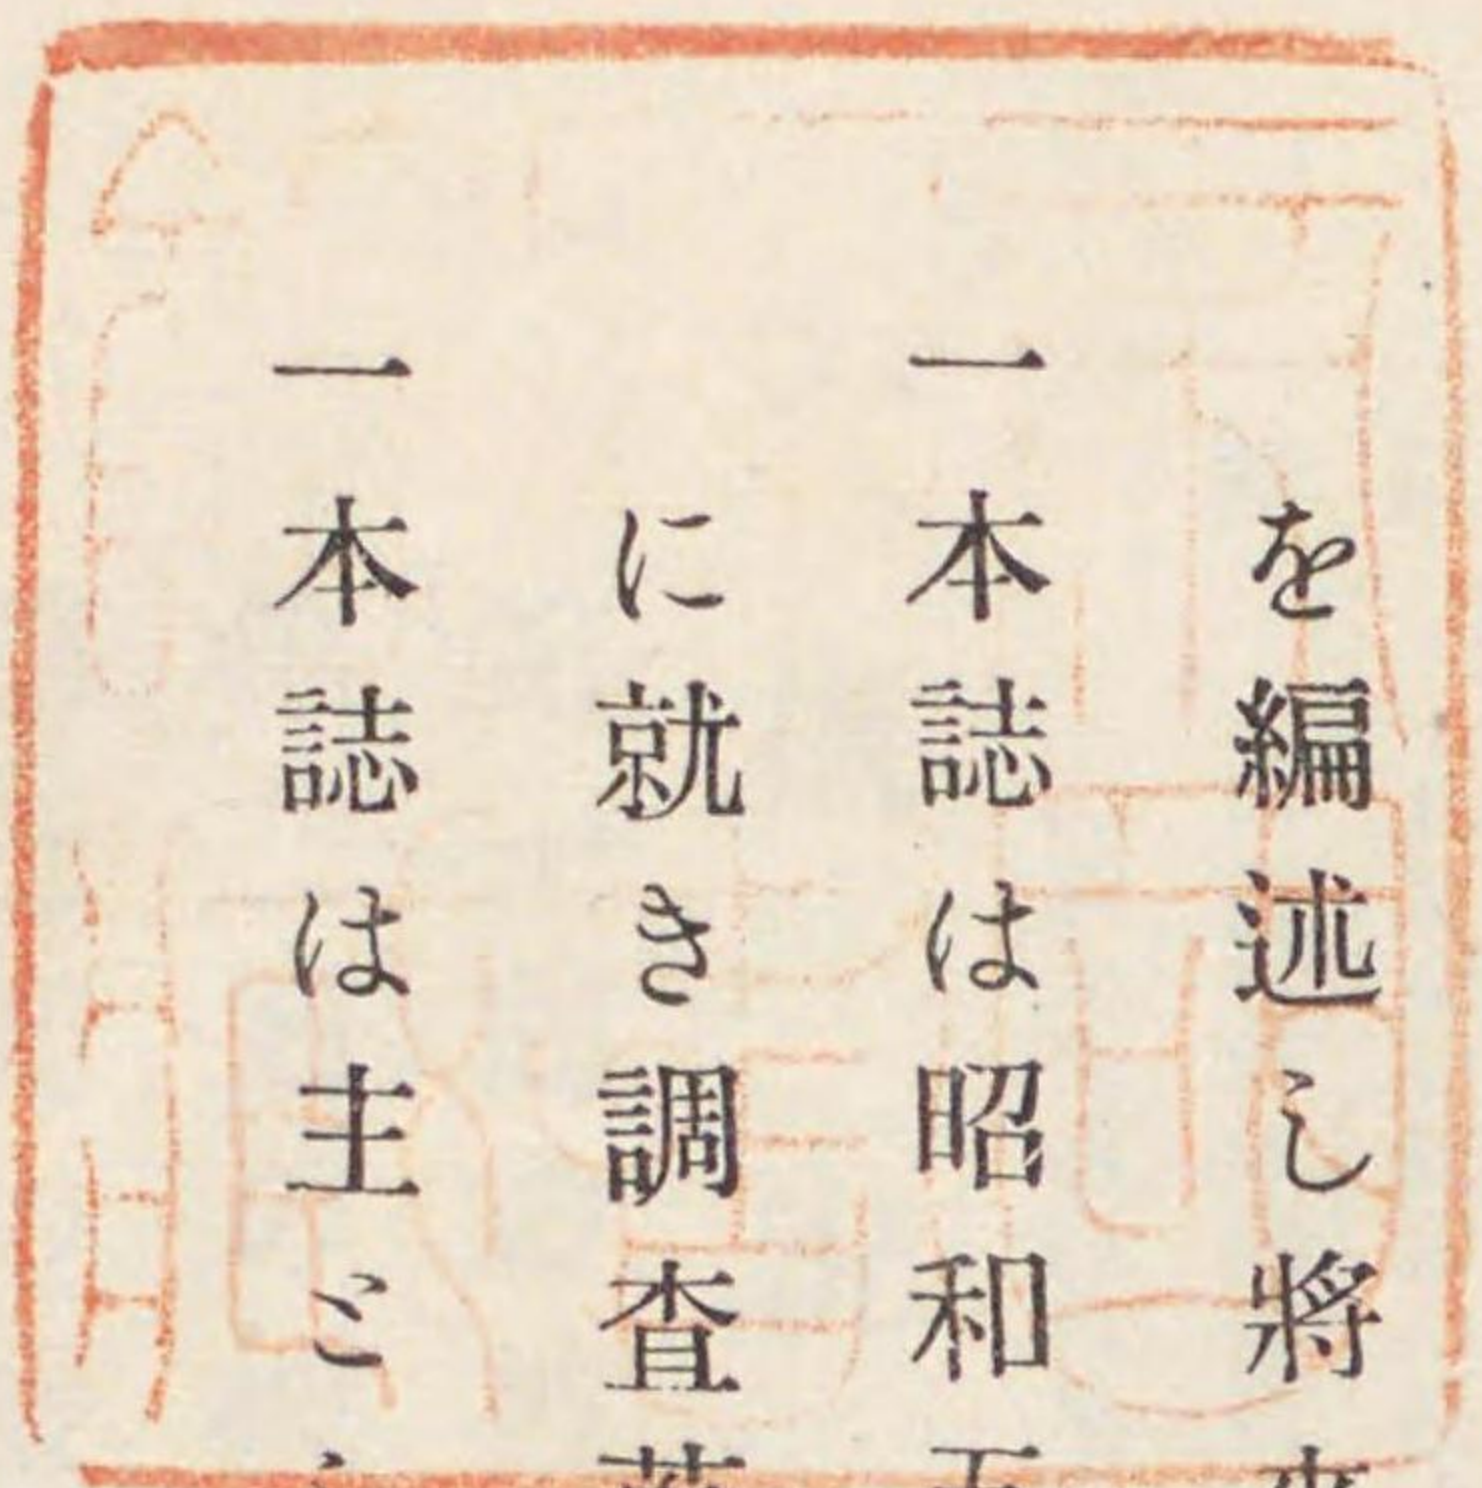 を編述し將
一本誌は昭和
に就き調査
一本誌は主と